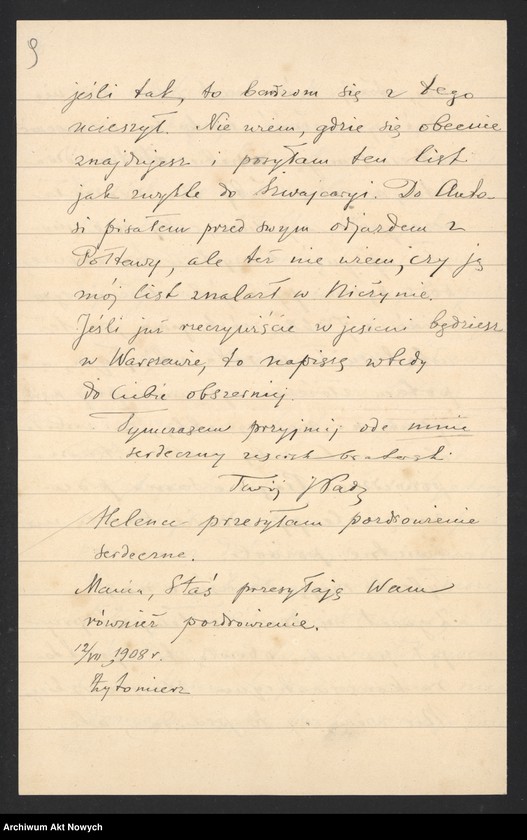 9
jeśli tak, to bardzom się z tego
ucieszył. Nie wiem, gdzie się obecnie
znajdujesz i posyłam ten list
jak zwykle do Szwajcaryi. Do Anto-
si pisałem przed swym odjazdem z
Połtawy, ale też nie wiem, czy ją
mój list znalazł w Nieżynie.
Jeśli już rzeczywiście w jesieni będziesz
w Warszawie, to napiszę wtedy
do Ciebie obszerniej.
Tymczasem przyjmij ode mnie
serdeczny uścisk braterski.
Twój Wady
Helenie przesyłam pozdrowienie
serdeczne.
Mania, Staś przesyłają Wam
również pozdrowienie.
12/VII 1908 r.
Żytomierz
Archiwum Akt Nowych